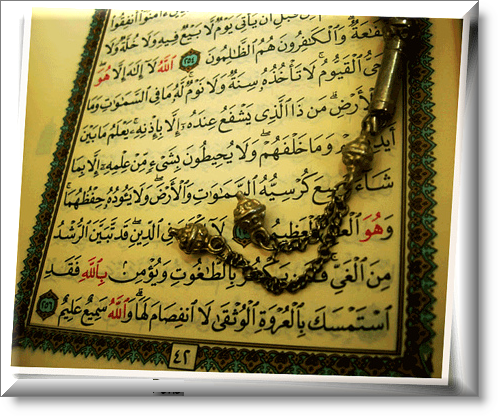 مِّن قَبْلِ أَن يَأْتِيَ يَوْمٌ لَّا بَيْعٌ فِيهِ وَلَا خُلَّةٌ وَلَا
شَفَٰعَةٌ وَٱلْكَٰفِرُونَ هُمُ ٱلظَّٰلِمُونَ ٢٥٤ ٱللَّهُ لَآ إِلَٰهَ إِلَّا هُوَ
ٱلْقَيُّومُ لَا تَأْخُذُهُۥ سِنَةٌ وَلَا نَوْمٌ لَّهُۥ مَا فِى ٱلسَّمَٰوَٰتِ وَمَا
ٱلْأَرْضِ مَن ذَا ٱلَّذِى يَشْفَعُ عِندَهُۥٓ إِلَّا بِإِذْنِهِۦ يَعْلَمُ مَا بَيْنَ
وَمَا خَلْفَهُمْ وَلَا يُحِيطُونَ بِشَىْءٍ مِّنْ عِلْمِهِۦٓ إِلَّا بِمَا
شَآءَ وَسِعَ كُرْسِيُّهُ ٱلسَّمَٰوَٰتِ وَٱلْأَرْضَ وَلَا يَـُٔودُهُۥ حِفْظُهُمَا
وَهُوَ ٱلْعَلِىُّ ٱلْعَظِيمُ لَآ فِى ٱلدِّينِ قَد تَّبَيَّنَ ٱلرُّشْدُ
مِنَ ٱلْغَىِّ فَمَن يَكْفُرْ بِٱلطَّٰغُوتِ وَيُؤْمِنۢ بِٱللَّهِ فَقَدِ
ٱسْتَمْسَكَ بِٱلْعُرْوَةِ ٱلْوُثْقَىٰ لَا ٱنفِصَامَ لَهَا وَٱللَّهُ سَمِيعٌ عَلِيمٌ ٢٥٦
٤٢